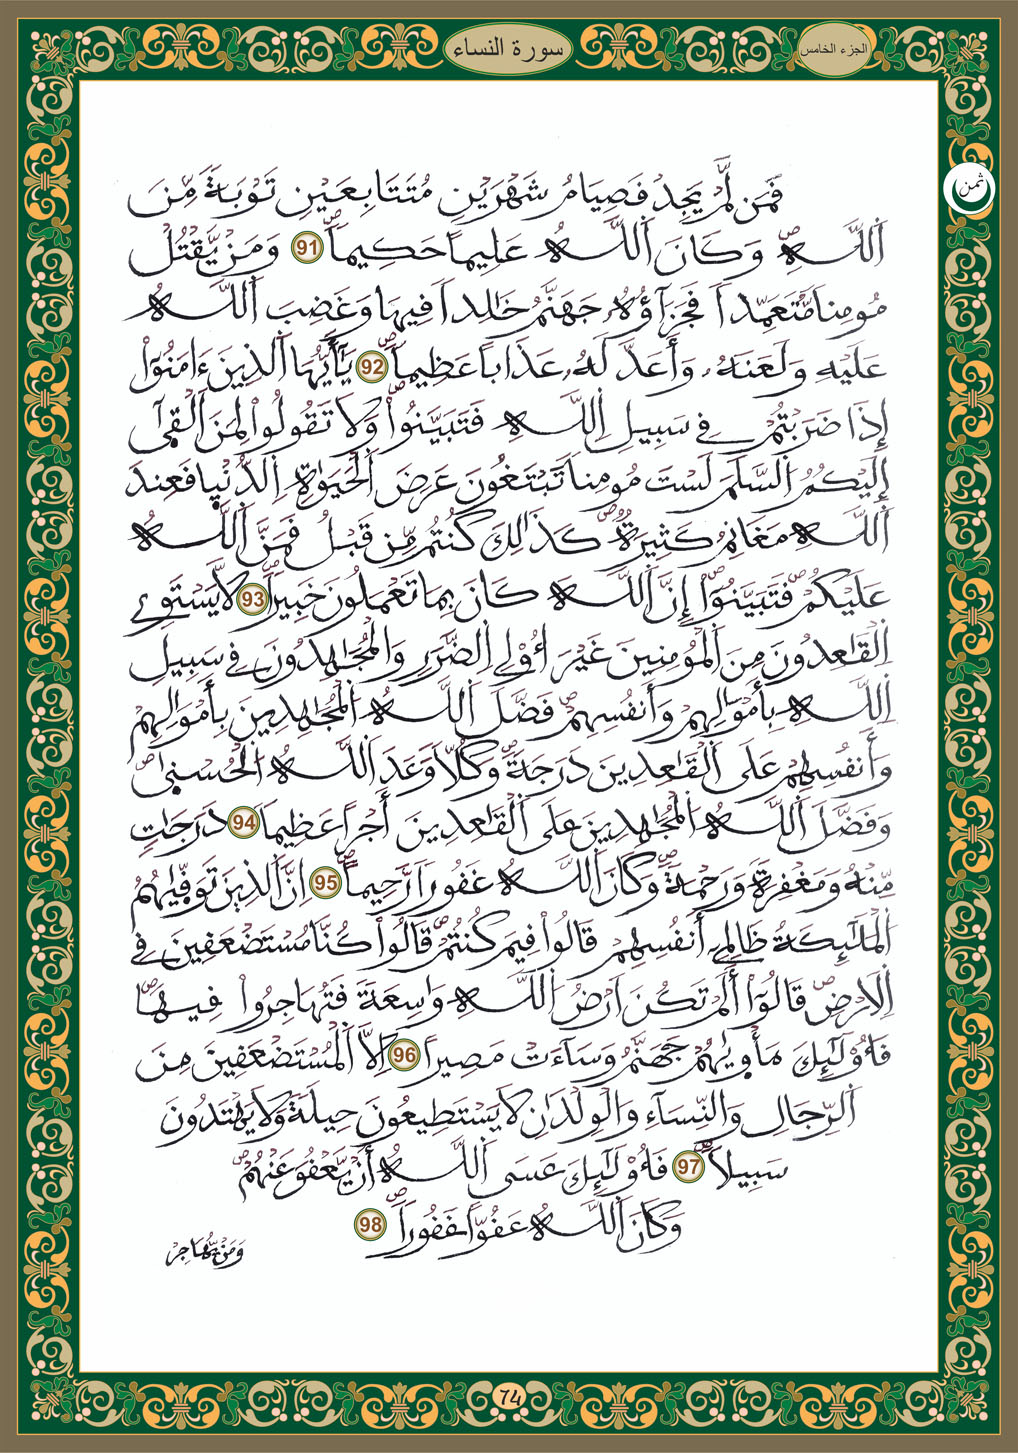 الجزء الخامس
سورة النساء
ثمن
فَمَن لَّمْ يَجِدْ فَصِيَامُ شَهْرَيْنِ مُتَتَابِعَيْنِ تَوْبَةً مِّنَ
اَللَّهِ وَكَانَ اَللَّهُ عَلِيماً حَكِيماً 91 وَمَنْ يَّقْتُلْ
مُومِناً مُّتَعَمِّداً فَجَزَآؤُهُ جَهَنَّمُ خَٰلِداً فِيهَا وَغَضِبَ اَللَّهُ
عَلَيْهِ وَلَعَنَهُ وَأَعَدَّ لَهُ عَذَاباً عَظِيماً 92 يَٰأَيُّهَا اَلذِينَ ءَامَنُوٓاْ
إِذَا ضَرَبْتُمْ فِي سَبِيلِ اِللَّهِ فَتَبَيَّنُواْ وَلَا تَقُولُواْ لِمَنَ اَلْقَىٰٓ
إِلَيْكُمُ اُلسَّلَمَ لَسْتَ مُومِناً تَبْتَغُونَ عَرَضَ اَلْحَيَوٰةِ اِلدُّنْيَا فَعِندَ
اَللَّهِ مَغَانِمُ كَثِيرَةٌ كَذَٰلِكَ كُنتُم مِّن قَبْلُ فَمَنَّ اَللَّهُ
عَلَيْكُمْ فَتَبَيَّنُوٓاْ إِنَّ اَللَّهَ كَانَ بِمَا تَعْمَلُونَ خَبِيراً 93 لَّا يَسْتَوِي
اِلْقَٰعِدُونَ مِنَ اَلْمُومِنِينَ غَيْرَ أُوْلِي اِلضَّرَرِ وَالْمُجَٰهِدُونَ فِي سَبِيلِ
اِللَّهِ بِأَمْوَٰلِهِمْ وَأَنفُسِهِمْ فَضَّلَ اَللَّهُ اُلْمُجَٰهِدِينَ بِأَمْوَٰلِهِمْ
وَأَنفُسِهِمْ عَلَى اَلْقَٰعِدِينَ دَرَجَةً وَكُلّاً وَعَدَ اَللَّهُ اُلْحُسْنَىٰ
وَفَضَّلَ اَللَّهُ اُلْمُجَٰهِدِينَ عَلَى اَلْقَٰعِدِينَ أَجْراً عَظِيماً 94 دَرَجَٰتٍ
مِّنْهُ وَمَغْفِرَةً وَرَحْمَةً وَكَانَ اَللَّهُ غَفُوراً رَّحِيماً 95 اِنَّ اَلذِينَ تَوَفَّيٰهُمُ
اُلْمَلَٰٓئِكَةُ ظَالِمِي أَنفُسِهِمْ قَالُواْ فِيمَ كُنتُمْ قَالُواْ كُنَّا مُسْتَضْعَفِينَ فِي
اِلَارْضِ قَالُوٓاْ أَلَمْ تَكُنَ اَرْضُ اُللَّهِ وَٰسِعَةً فَتُهَاجِرُواْ فِيهَا
فَأُوْلَٰٓئِكَ مَأْوَيٰهُمْ جَهَنَّمُ وَسَآءَتْ مَصِيراً 96 اِلَّا اَلْمُسْتَضْعَفِينَ مِنَ
اَلرِّجَالِ وَالنِّسَآءِ وَالْوِلْدَٰنِ لَا يَسْتَطِيعُونَ حِيلَةً وَلَا يَهْتَدُونَ
سَبِيلاً 97 فَأُوْلَٰٓئِكَ عَسَى اَللَّهُ أَنْ يَّعْفُوَ عَنْهُمْ
وَكَانَ اَللَّهُ عَفُوّاً غَفُوراً 98
وَمَنْ يُّهَاجِرْ
74